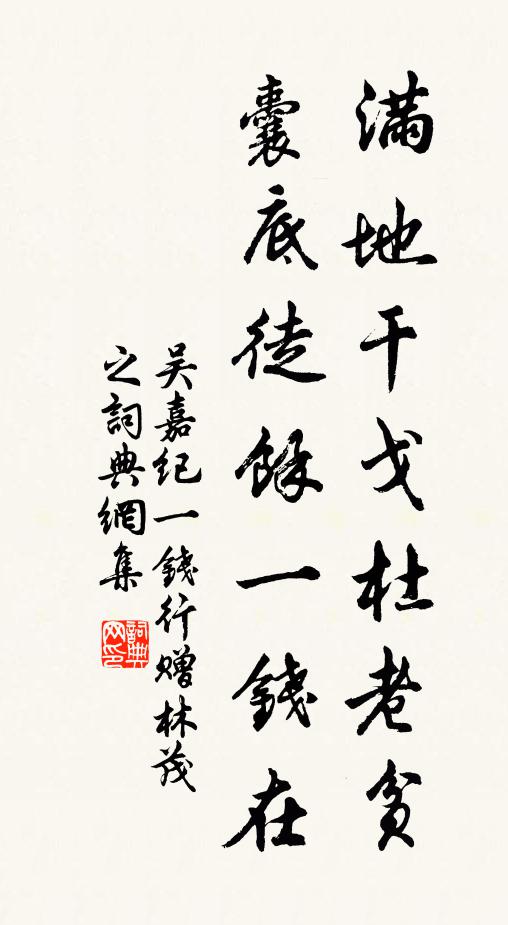 滿地干戈杜老貧
囊底徒餘一錢在
吴嘉纪一錢行赠林茂
之詞典網集
詞典
网印